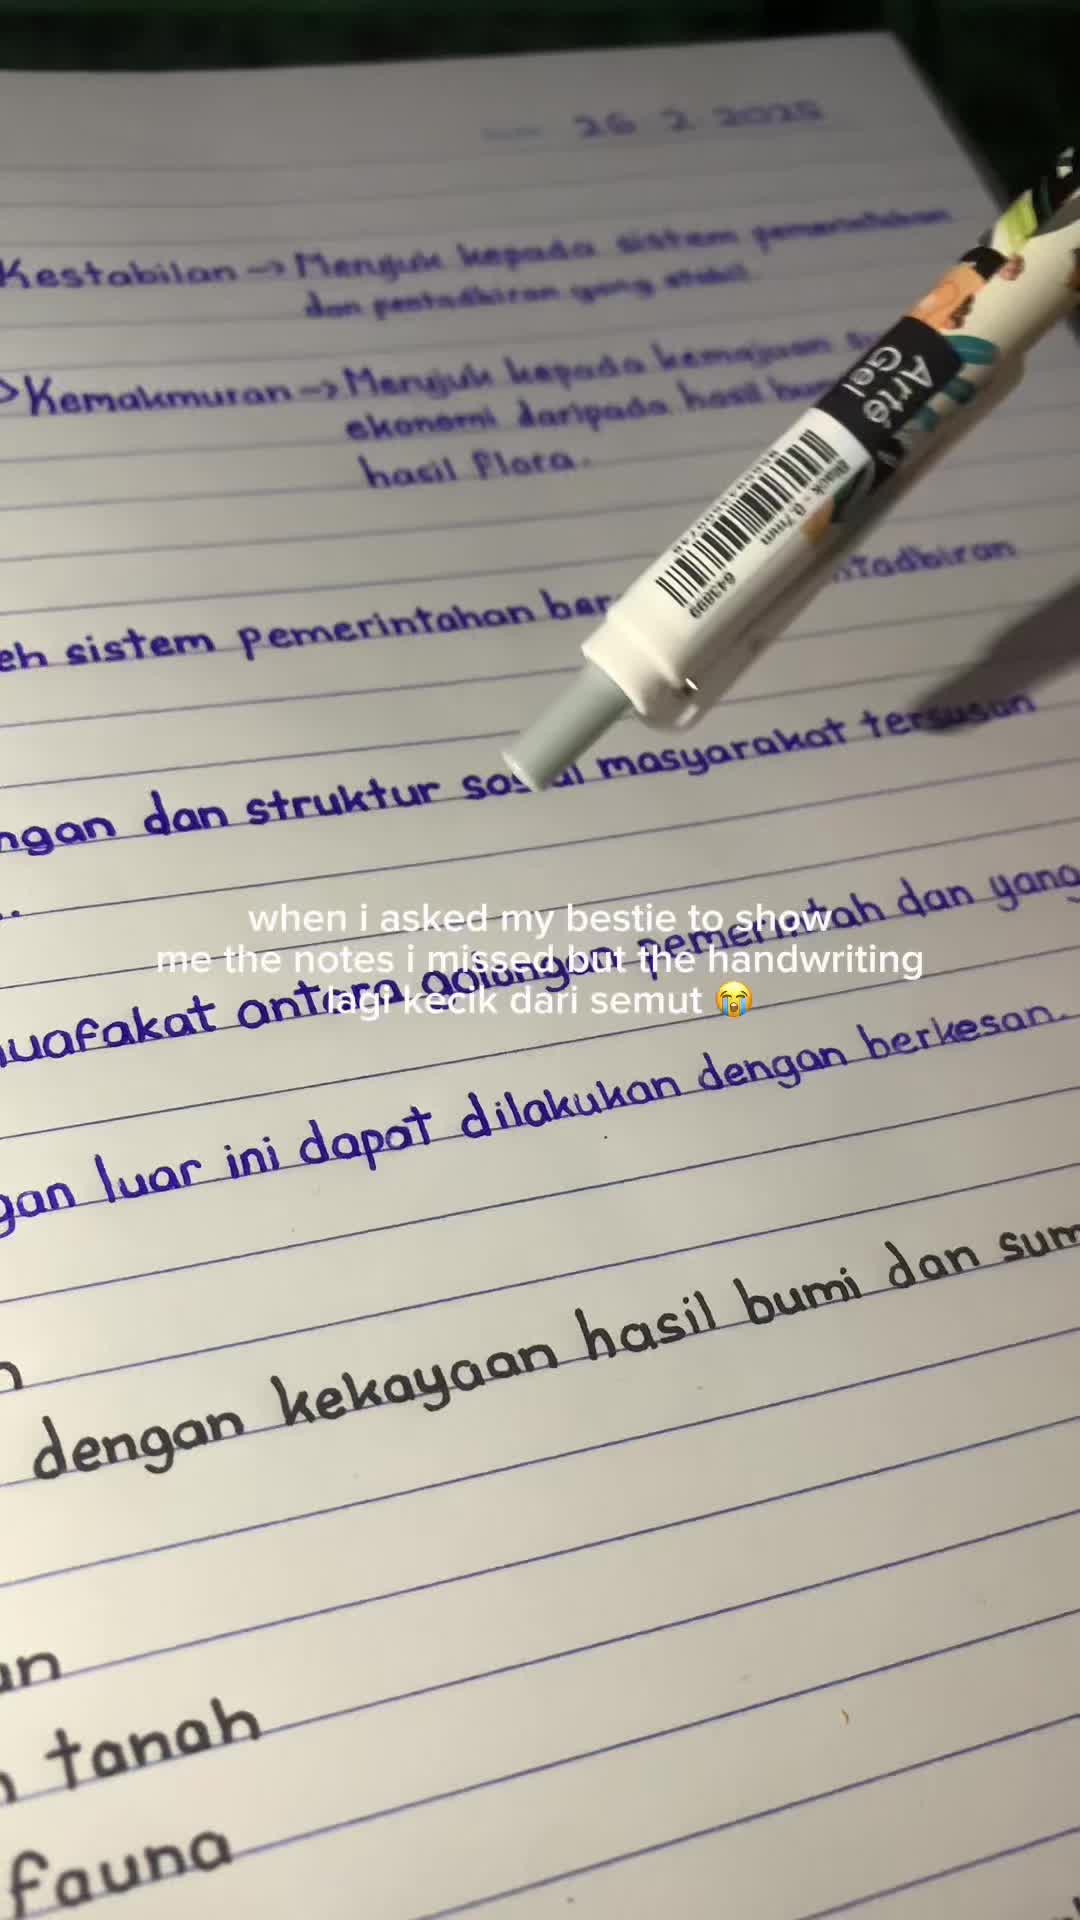 26 2 2025
Kestabilan → Merujuk kepada sistem pemerintahan
dan pentadbiran yang stabil.
> Kemakmuran → Merujuk kepada kemajuan
ekonomi daripada hasil bumi
hasil flora.
eh sistem pemerintahan ber ntadbiran
ngan dan struktur sosial masyarakat tersusan
..
uafakat antara golongan pemerintah dan yang
gan luar ini dapat dilakukan dengan berkesan.
n
dengan kekayaan hasil bumi dan sum
an
n tanah
fauna
Arté
Gel
Black - 0.7mm
643899
when i asked my bestie to show
me the notes i missed but the handwriting
lagi kecik dari semut 😭